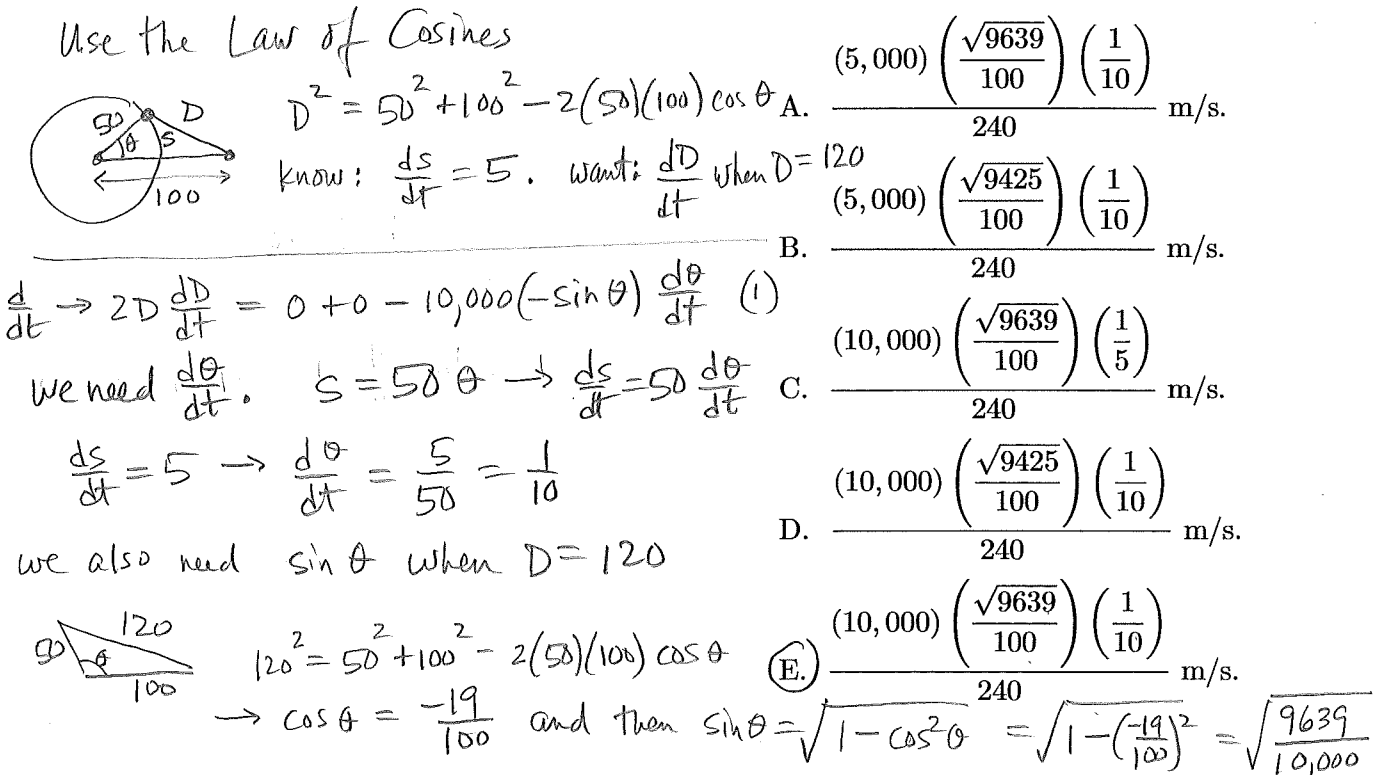 Use the Law of Cosines
50 D
θ S
100
D² = 50² + 100² - 2(50)(100) cos θ
know: ds/dt = 5. want: dD/dt when D = 120
d/dt → 2D dD/dt = 0 + 0 - 10,000(-sin θ) dθ/dt (1)
we need dθ/dt. S = 50 θ → ds/dt = 50 dθ/dt
ds/dt = 5 → dθ/dt = 5/50 = 1/10
we also need sin θ when D = 120
50 120
θ
100
120² = 50² + 100² - 2(50)(100) cos θ
→ cos θ = -19/100 and then sin θ = √(1 - cos²θ) = √(1 - (-19/100)²) = √(9639/10,000)
A. (5,000) (√9639/100) (1/10) / 240 m/s.
B. (5,000) (√9425/100) (1/10) / 240 m/s.
C. (10,000) (√9639/100) (1/5) / 240 m/s.
D. (10,000) (√9425/100) (1/10) / 240 m/s.
E. (10,000) (√9639/100) (1/10) / 240 m/s.